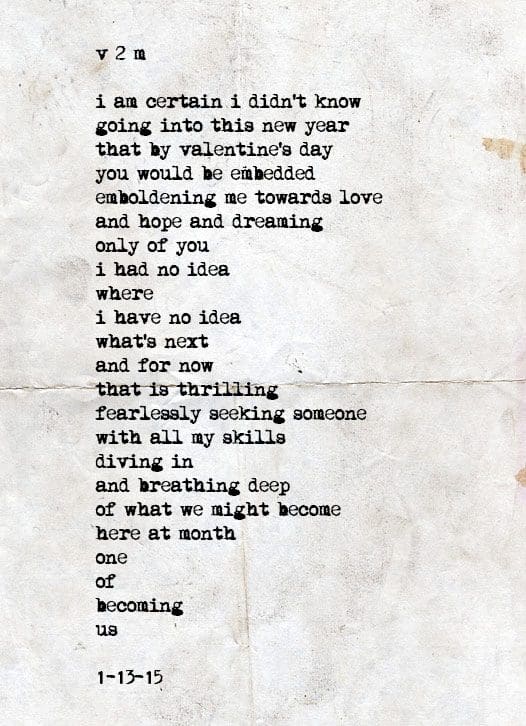 v 2 m
i am certain i didn't know
going into this new year
that by valentine's day
you would be embedded
emboldening me towards love
and hope and dreaming
only of you
i had no idea
where
i have no idea
what's next
and for now
that is thrilling
fearlessly seeking someone
with all my skills
diving in
and breathing deep
of what we might become
here at month
one
of
becoming
us
1-13-15